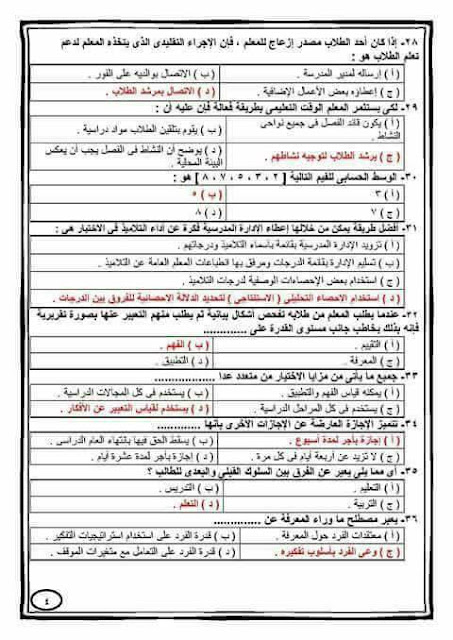 ٢٨- إذا كان أحد الطلاب مصدر إزعاج للمعلم ، فإن الإجراء التقليدى الذى يتخذه المعلم لدعم
تعلم الطلاب هو :
( أ ) إرساله لمدير المدرسة . ( ب ) الاتصال بوالديه على الفور .
( ج ) إعطاؤه بعض الأعمال الإضافية . ( د ) الاتصال بمرشد الطلاب .
٢٩- لكى يستثمر المعلم الوقت التعليمى بطريقة فعالة فإن عليه أن :
( أ ) يكون قائد الفصل فى جميع نواحى ( ب ) يقوم بتلقين الطلاب مواد دراسية .
النشاط .
( ج ) يرشد الطلاب لتوجيه نشاطهم . ( د ) يوضح أن النشاط فى الفصل يجب أن يعكس
البيئة المحلية .
٣٠- الوسط الحسابى للقيم التالية [ ٢ ، ٣ ، ٥ ، ٧ ، ٨ ] هو :
( أ ) ٣ ( ب ) ٥
( ج ) ٧ ( د ) ٨
٣١- أفضل طريقة يمكن من خلالها إعطاء الإدارة المدرسية فكرة عن أداء التلاميذ فى الاختبار هى :
( أ ) تزويد الإدارة المدرسية بقائمة بأسماء التلاميذ ودرجاتهم .
( ب ) تسليم الإدارة بقائمة الدرجات ومرفق بها انطباعات المعلم العامة عن التلاميذ .
( ج ) استخدام بعض الإحصاءات الوصفية لدرجات التلاميذ .
( د ) استخدام الاحصاء التحليلى ( الاستنتاجى ) لتحديد الدلالة الاحصائية للفروق بين الدرجات .
٣٢- عندما يطلب المعلم من طلابه تفحص أشكال بيانية ثم يطلب منهم التعبير عنها بصورة تقريرية
فإنه بذلك يخاطب جانب مستوى القدرة على .............
( أ ) التقييم . ( ب ) الفهم .
( ج ) المعرفة . ( د ) التطبيق .
٣٣- جميع ما يأتى من مزايا الاختبار من متعدد عدا .................
( أ ) يمكنه قياس الفهم والتطبيق . ( ب ) يستخدم فى كل المجالات الدراسية .
( ج ) يستخدم فى كل المراحل الدراسية . ( د ) يستخدم لقياس التعبير عن الأفكار .
٣٤- تتميز الإجازة العارضة عن الإجازات الأخرى بأنها .............
( أ ) إجازة بأجر لمدة أسبوع . ( ب ) يسقط الحق فيها بانتهاء العام الدراسى .
( ج ) لا تزيد عن أربعة أيام فى كل مرة . ( د ) إجازة بأجر لمدة عشرة أيام .
٣٥- أى مما يلى يعبر عن الفرق بين السلوك القبلى والبعدى للطالب ؟
( أ ) التعليم . ( ب ) التدريس .
( ج ) التربية . ( د ) التعلم .
٣٦- يعبر مصطلح ما وراء المعرفة عن .............
( أ ) معتقدات الفرد حول المعرفة . ( ب ) قدرة الفرد على استخدام استراتيجيات التفكير .
( ج ) وعى الفرد بأسلوب تفكيره . ( د ) قدرة الفرد على التعامل مع متغيرات الموقف .
٤